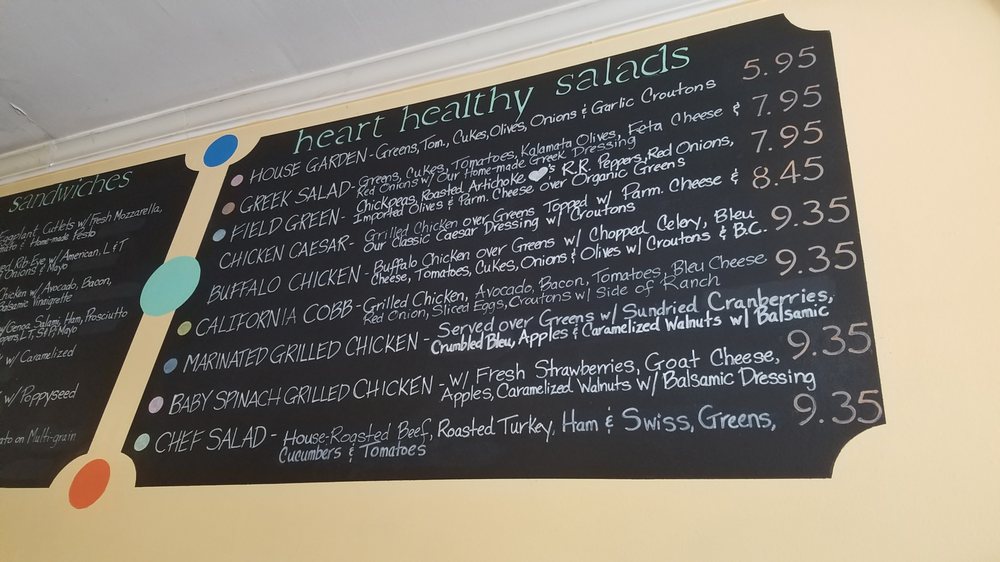 sandwiches
Eggplant Cutlets w/ Fresh Mozzarella,
& Home-made Pesto
Rib-Eye w/ American, L & T
Onions & Mayo
Chicken w/ Avocado, Bacon,
Balsamic Vinaigrette
w/ Genoa Salami, Ham, Prosciutto
L, T, S & P, Mayo
w/ Caramelized
w/ Poppyseed
on Multi-grain
heart healthy salads
HOUSE GARDEN - Greens, Tom., Cukes, Olives, Onions & Garlic Croutons 5.95
GREEK SALAD - Greens, Cukes, Tomatoes, Kalamata Olives, Feta Cheese & 7.95
Red Onions w/ Our Home-made Greek Dressing
FIELD GREEN - Chickpeas, Roasted Artichoke ♥'s R.R. Peppers, Red Onions, 7.95
Imported Olives & Parm. Cheese over Organic Greens
CHICKEN CAESAR - Grilled Chicken over Greens Topped w/ Parm. Cheese & 8.45
Our Classic Caesar Dressing w/ Croutons
BUFFALO CHICKEN - Buffalo Chicken over Greens w/ Chopped Celery, Bleu 9.35
Cheese, Tomatoes, Cukes, Onions & Olives w/ Croutons & B.C.
CALIFORNIA COBB - Grilled Chicken, Avocado, Bacon, Tomatoes, Bleu Cheese 9.35
Red Onion, Sliced Eggs, Croutons w/ Side of Ranch
MARINATED GRILLED CHICKEN - Served over Greens w/ Sundried Cranberries,
Crumbled Bleu, Apples & Caramelized Walnuts w/ Balsamic
BABY SPINACH GRILLED CHICKEN - w/ Fresh Strawberries, Goat Cheese, 9.35
Apples, Caramelized Walnuts w/ Balsamic Dressing
CHEF SALAD - House-Roasted Beef, Roasted Turkey, Ham & Swiss, Greens, 9.35
Cucumbers & Tomatoes